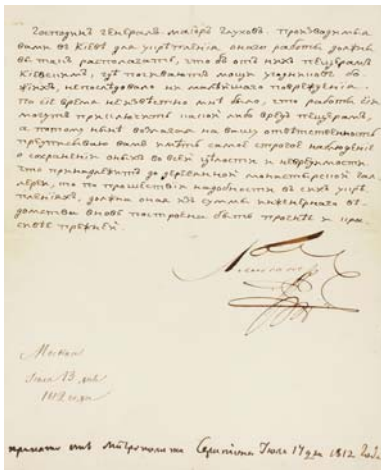 Господинъ Генералъ-Маіоръ Глуховъ. Производимыя
вами въ Кіевѣ для укрѣпленія онаго работы должны
вы такъ располагать, чтобъ отъ нихъ пещерамъ
Кіевскимъ, гдѣ почиваютъ мощи угодниковъ Бо-
жіихъ, непослѣдовало ни малѣйшаго поврежденія.
По сіе время неизвѣстно мнѣ было, что работы сіи
могутъ приключить какой либо вредъ пещерамъ,
а потому нынѣ возлагая на вашу отвѣтственность
предписываю вамъ имѣть самое строгое наблюденіе
о сохраненіи оныхъ во всей цѣлости и невредимости.
Что принадлежитъ до деревянной монастырской гал-
лереи, то по прошествіи надобности въ сихъ укрѣ-
пленіяхъ, должна оная изъ суммы инженернаго вѣ-
домства вновь построена быть прочнѣе и кра-
сивѣе прежней.
Александръ
Москва
Іюля 13 дня
1812 года
отъ Митрополита Серапіона Іюля 17 дня 1812 Года